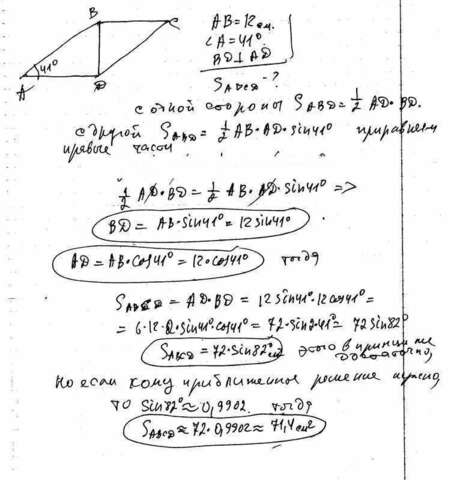 B C
A D
41°
AB = 12 см.
∠A = 41°
BD ⊥ AD
S_ABCD - ?
с одной стороны S_ABD = 1/2 AD · BD.
с другой S_ABD = 1/2 AB · AD · sin41° приравняем
правые части
1/2 AD · BD = 1/2 AB · AD · sin41° =>
BD = AB · sin41° = 12 sin41°
AD = AB · cos41° = 12 · cos41° тогда
S_ABCD = AD · BD = 12 sin41° · 12 cos41° =
= 6 · 12 · 2 · sin41° · cos41° = 72 · sin2·41° = 72 sin82°
S_ABCD = 72 · sin82° см² этого в принципе
достаточно,
Но если кому приближенное решение нужно,
то sin82° ≈ 0,9902. тогда
S_ABCD ≈ 72 · 0,9902 ≈ 71,4 см²